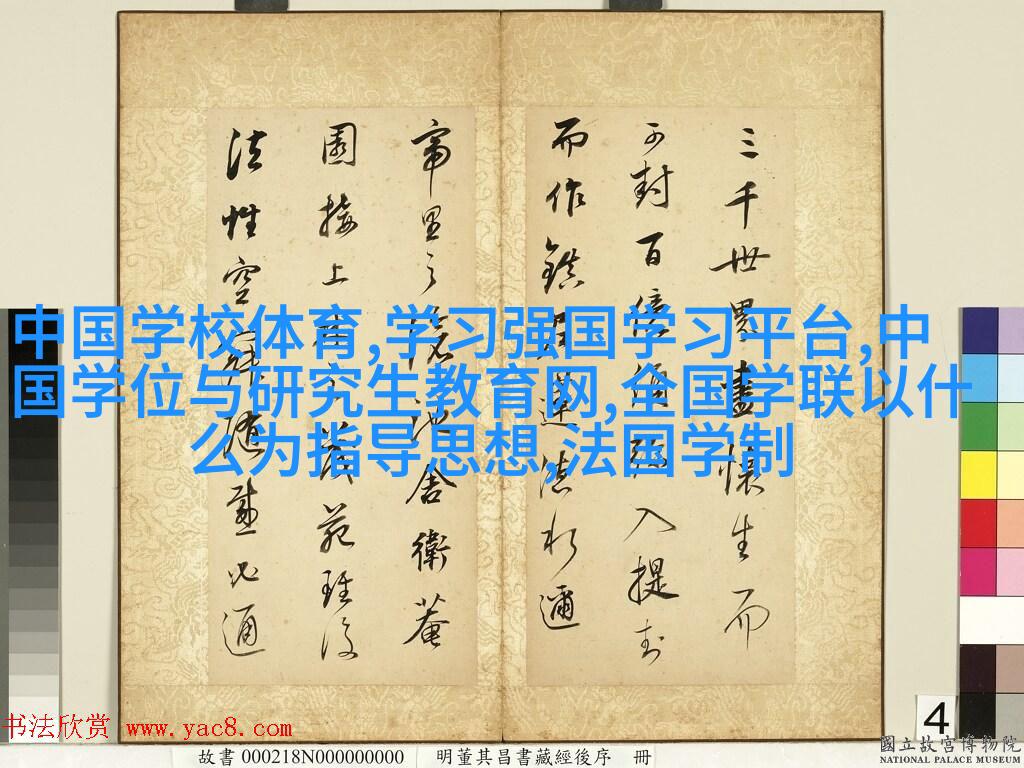 三千世界盡懷生而
可封百億須彌入提封
而作鎮
帝里之池舍衛菴
園接上林
法性空隨感必通
中国学校体育,学习强国学习平台,中
国学位与研究生教育网,全国学联以什
么为指导思想,法国学制
4
书法欣赏 www.yac8.com
故書 000218N000000000 明董其昌書藏經後序 冊
國立故宮博物院
NATIONAL PALACE MUSEUM